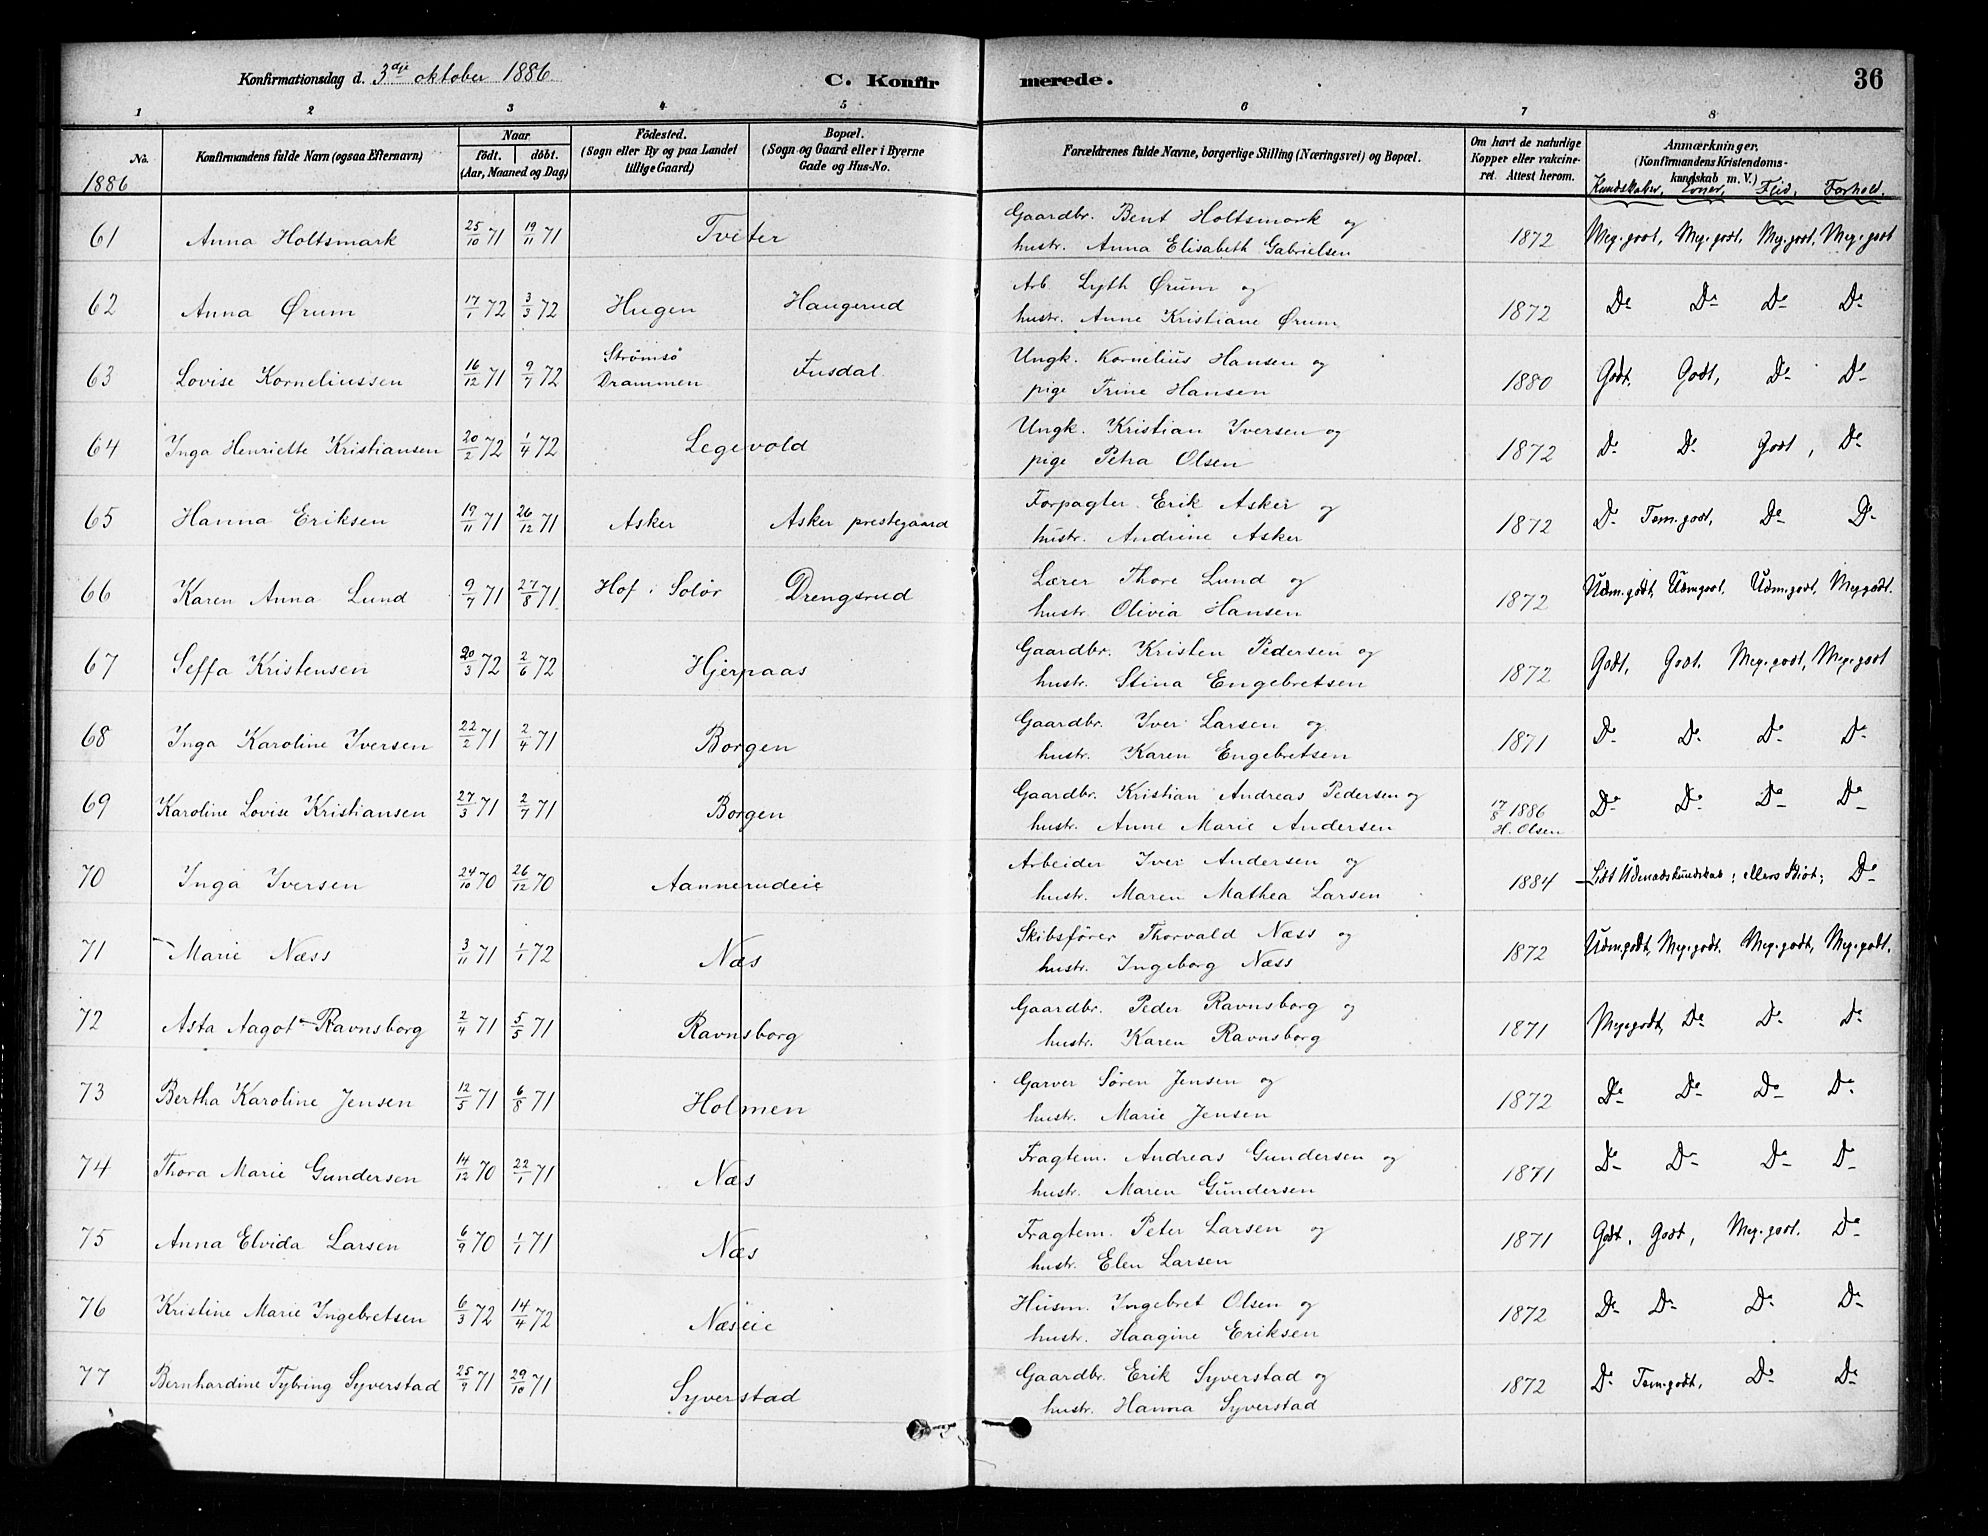 Konfirmationsdag d. 3dje oktober 1886. C. Konfirmerede. 36
1 2 3 4 5 6 7 8
No. Konfirmandens fulde Navn (ogsaa Efternavn) Naar født. døbt. (Aar, Maaned og Dag) Fødested. (Sogn eller By og paa Landet tillige Gaard) Bopæl. (Sogn og Gaard eller i Byerne Gade og Hus-No. Forældrenes fulde Navne, borgerlige Stilling (Næringsvei) og Bopæl. Om havt de naturlige Kopper eller vakcineret. Attest herom. Anmærkninger. (Konfirmandens Kristendomskundskab m. V.)
1886 Kundskaber, Evner, Flid, Forhold.
61 Anna Holtsmark 25/10 71 19/11 71 Tveter Gaardbr. Bent Holtsmark og
hustr. Anna Elisabeth Gabrielsen 1872 Meg. godt, Meg. godt, Meg. godt, Meg. godt
62 Anna Ørum 17/1 72 3/3 72 Hugen Haugerud Arb. Lyth Ørum og
hustr. Anne Kristiane Ørum 1872 Do Do Do Do
63 Lovise Korneliussen 16/12 71 9/7 72 Strømsø Drammen Fusdal Ungk. Kornelius Hansen og
pige Trine Hansen 1880 Godt, Godt, Do Do
64 Inga Henriette Kristiansen 20/2 72 1/4 72 Legevold Ungk. Kristian Iversen og
pige Petra Olsen 1872 Do Do Godt, Do
65 Hanna Eriksen 19/11 71 26/12 71 Asker Asker prestegaard Forpagter Erik Asker og
hustr. Andrine Asker 1872 Do Tem. godt, Do Do
66 Karen Anna Lund 9/7 71 27/8 71 Hof i Solør Drengsrud Lærer Thore Lund og
hustr. Olivia Hansen 1872 Udm. godt, Udm. godt, Udm. godt, Meg. godt.
67 Seffa Kristensen 20/3 72 2/6 72 Hjerpaas Gaardbr. Kristen Pedersen og
hustr. Stina Engebretsen 1872 Godt, Godt, Meg. godt, Meg. godt
68 Inga Karoline Iversen 22/2 71 2/4 71 Borgen Gaardbr. Iver Larsen og
hustr. Karen Engebretsen 1871 Do Do Do Do
69 Karoline Lovise Kristiansen 27/3 71 2/7 71 Borgen Gaardbr. Kristian Andreas Pedersen og
hustr. Anne Marie Andersen 17/8 1886 H. Olsen Do Do Do Do
70 Inga Iversen 24/10 70 26/12 70 Aannerudeie Arbeider Iver Andersen og
hustr. Maren Mathea Larsen 1884 Lidt Udenadskundskab; ellers Idiot; Do
71 Marie Næss 3/11 71 1/1 72 Næs Skibsfører Thorvald Næss og
hustr. Ingeborg Næss 1872 Udm. godt, Meg. godt, Meg. godt, Meg. godt.
72 Asta Aagot Ravnsborg 2/4 71 5/5 71 Ravnsborg Gaardbr. Peder Ravnsborg og
hustr. Karen Ravnsborg 1871 Meg. godt, Do Do Do
73 Bertha Karoline Jensen 12/5 71 6/8 71 Holmen Garver Søren Jensen og
hustr. Marie Jensen 1872 Do Do Do Do
74 Thora Marie Gundersen 14/12 70 22/1 71 Næs Fragtem. Andreas Gundersen og
hustr. Maren Gundersen 1871 Do Do Do Do
75 Anna Elvida Larsen 6/9 70 1/1 71 Næs Fragtem. Peter Larsen og
hustr. Elen Larsen 1871 Godt, Godt, Meg. godt. Do
76 Kristine Marie Ingebretsen 6/3 72 14/4 72 Næseie Husm. Ingebret Olsen og
hustr. Haagine Eriksen 1872 Do Do Do Do
77 Bernhardine Tybring Syverstad 25/9 71 29/10 71 Syverstad Gaardbr. Erik Syverstad og
hustr. Hanna Syverstad 1872 Do Tem. godt, Do Do